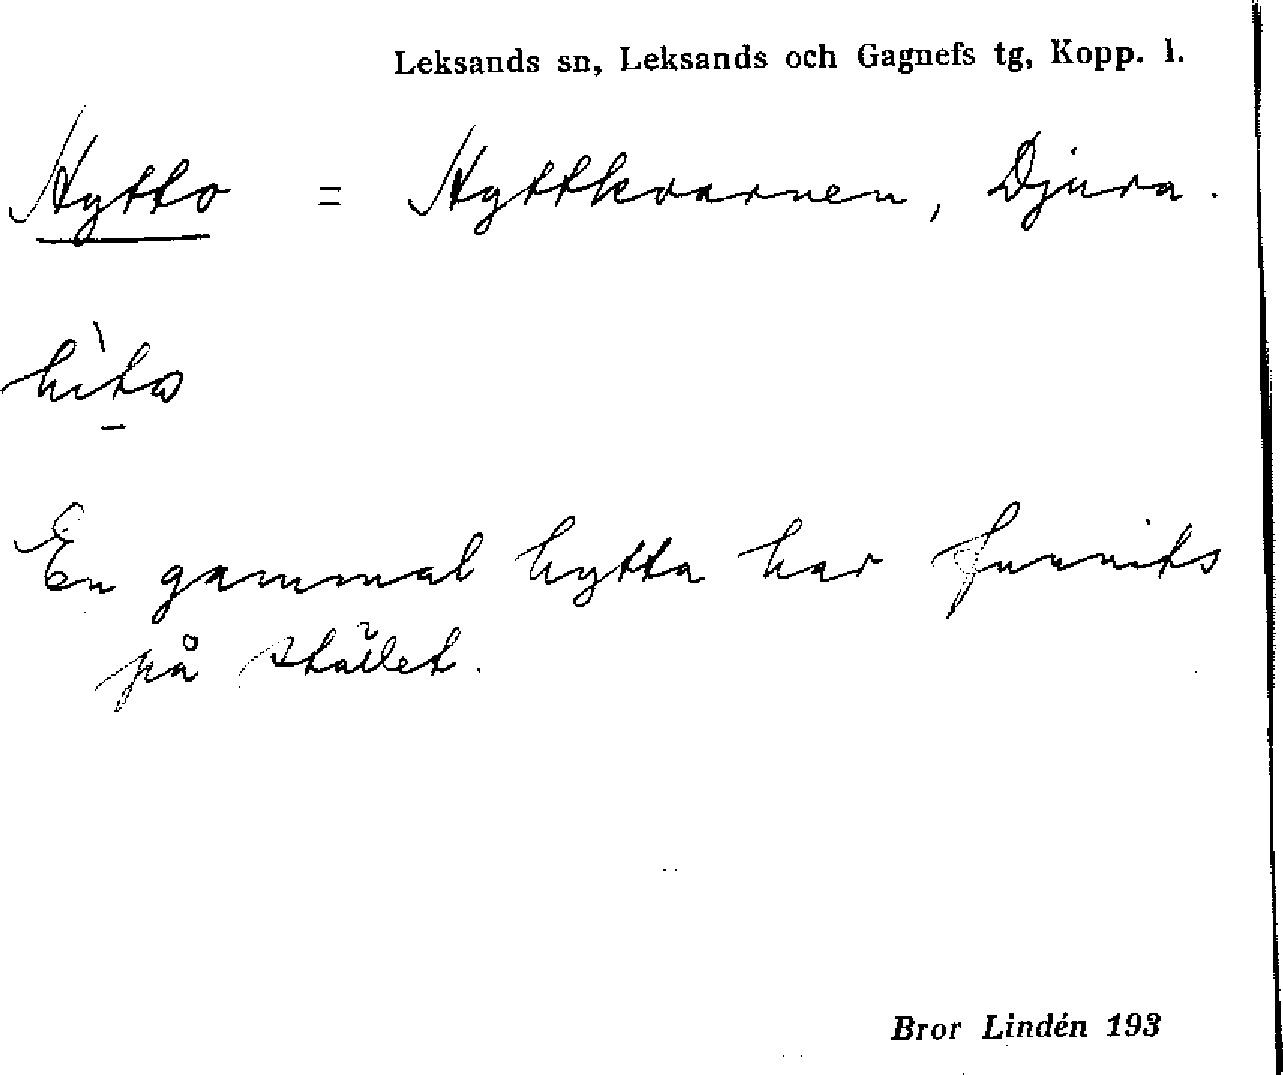 Leksands sn, Leksands och Gagnefs tg, Kopp. l.
Hytto = Hyttkvarnen, Djura.
En gammal hytta har funnits
på stället.
Bror Lindén 193